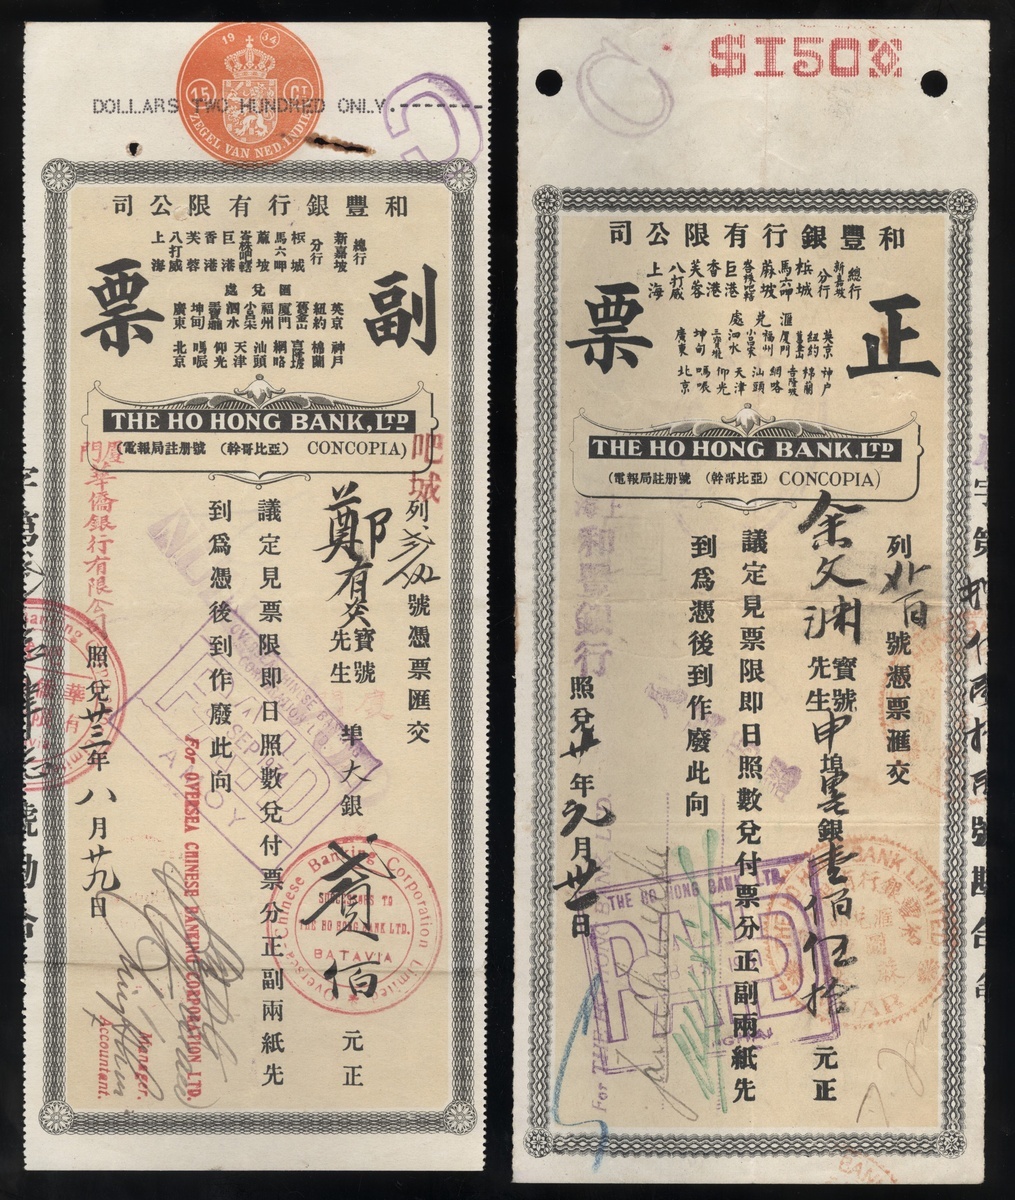 1934
15 CT
ZEGEL VAN NED. INDIË
DOLLARS TWO HUNDRED ONLY.
司公限有行銀豐和
總行
新嘉坡
分行
檳城
馬六呷
蔴坡
峇株吧轄
巨港
香港
芙蓉
八打威
上海
處兌匯
英京
紐約
舊金山
廈門
福州
小呂宋
泗水
三寶壟
坤甸
廣東
神戶
棉蘭
吉隆坡
網咯
汕頭
天津
仰光
嗎㖘
北京
副
票
THE HO HONG BANK, LTD
(電報局註册號 (幹哥比亞) CONCOPIA)
吧城
列
號憑票匯交
鄭有
寶號
先生
埠大銀貳佰元正
議定見票限即日照數兌付票分正副兩紙先
到爲憑後到作廢此向
廈門華僑銀行有限公司
照兌廿三年八月廿九日
PAID
SEP
AMOY
Oversea Chinese Banking Corporation Limited
SUCCESSORS TO
THE HO HONG BANK LTD.
BATAVIA
For OVERSEA CHINESE BANKING CORPORATION LTD.
Manager.
Accountant.
$150
司公限有行銀豐和
總行
新嘉坡
分行
檳城
馬六呷
蔴坡
峇株吧轄
巨港
香港
芙蓉
八打威
上海
處兌滙
英京
紐約
舊金山
廈門
福州
小呂宋
泗水
三寶壟
坤甸
廣東
神戶
棉蘭
吉隆坡
網咯
汕頭
天津
仰光
嗎㖘
北京
正
票
THE HO HONG BANK, LTD
(電報局註册號 (幹哥比亞) CONCOPIA)
列
號憑票滙交
余文渊
寶號
先生
申埠
銀壹佰伍拾元正
議定見票限即日照數兌付票分正副兩紙先
到爲憑後到作廢此向
上海和豐銀行
照兌廿年元月廿一日
THE HO HONG BANK LTD.
PAID